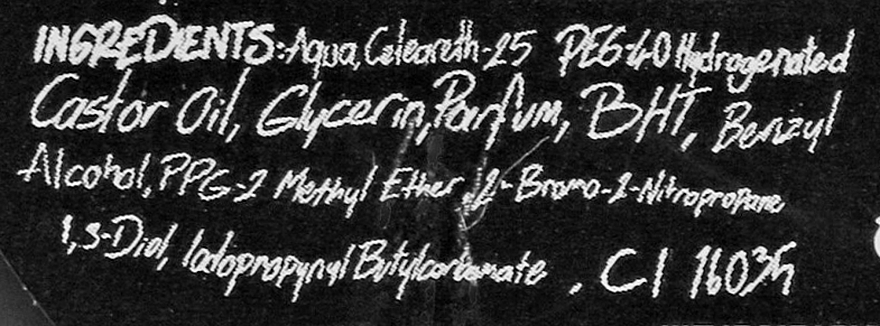 INGREDIENTS: Aqua, Ceteareth-25 PEG-40 Hydrogenated
Castor Oil, Glycerin, Parfum, BHT, Benzyl
Alcohol, PPG-2 Methyl Ether, 2-Bromo-2-Nitropropane
1,3-Diol, Iodopropynyl Butylcarbamate, CI 16035